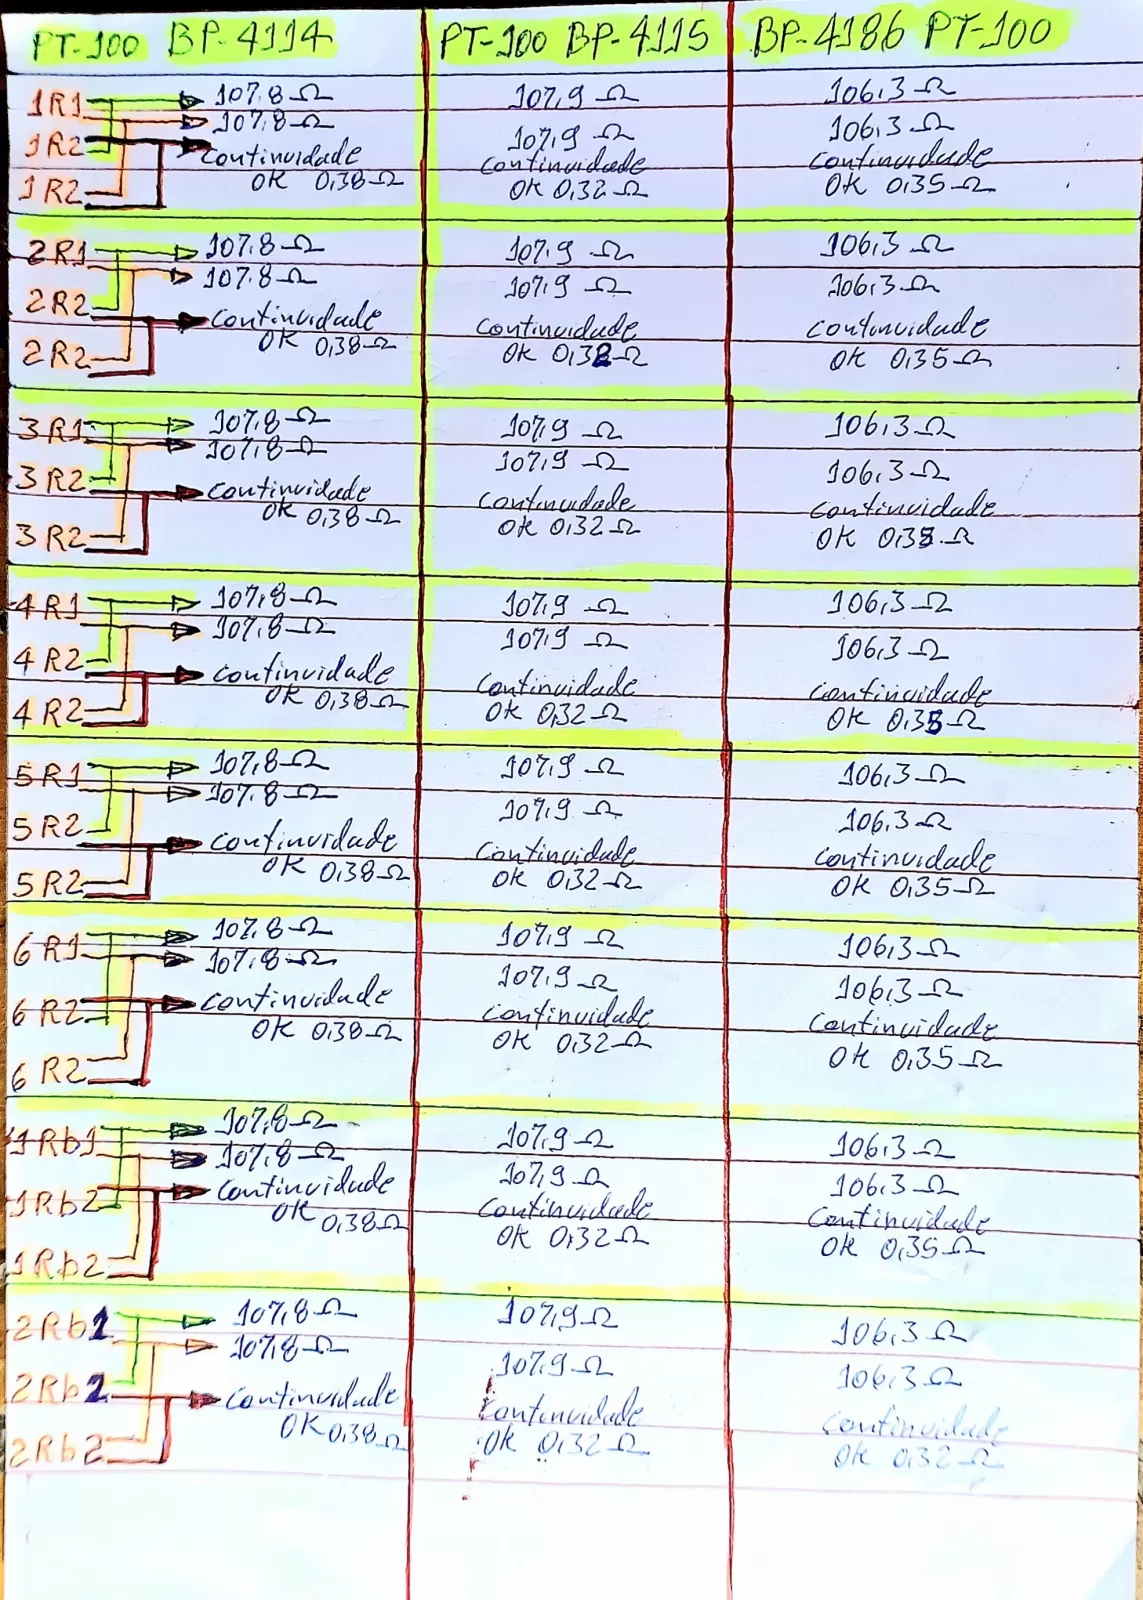 PT-100 BP-4114
PT-100 BP-4115
BP-4186 PT-100
1R1 107.8 Ω 107,9 Ω 106,3 Ω
107,8 Ω 107,9 Ω 106,3 Ω
1R2 Continuidade Continuidade Continuidade
OK 0,38 Ω OK 0,32 Ω OK 0,35 Ω
1R2
2R1 107.8 Ω 107,9 Ω 106,3 Ω
107.8 Ω 107,9 Ω 106,3 Ω
2R2 Continuidade Continuidade Continuidade
OK 0,38 Ω OK 0,32 Ω OK 0,35 Ω
2R2
3R1 107,8 Ω 107,9 Ω 106,3 Ω
107,8 Ω 107,9 Ω 106,3 Ω
3R2 Continuidade Continuidade Continuidade
OK 0,38 Ω OK 0,32 Ω OK 0,35 Ω
3R2
4R1 107,8 Ω 107,9 Ω 106,3 Ω
107,8 Ω 107,9 Ω 106,3 Ω
4R2 Continuidade Continuidade Continuidade
OK 0,38 Ω OK 0,32 Ω OK 0,35 Ω
4R2
5R1 107,8 Ω 107,9 Ω 106,3 Ω
107.8 Ω 107,9 Ω 106,3 Ω
5R2 Continuidade Continuidade Continuidade
OK 0,38 Ω OK 0,32 Ω OK 0,35 Ω
5R2
6R1 107,8 Ω 107,9 Ω 106,3 Ω
107,8 Ω 107,9 Ω 106,3 Ω
6R2 Continuidade Continuidade Continuidade
OK 0,38 Ω OK 0,32 Ω OK 0,35 Ω
6R2
1Rb1 107,8 Ω 107,9 Ω 106,3 Ω
107,8 Ω 107,9 Ω 106,3 Ω
1Rb2 Continuidade Continuidade Continuidade
OK 0,38 Ω OK 0,32 Ω OK 0,35 Ω
1Rb2
2Rb1 107,8 Ω 107,9 Ω 106,3 Ω
107,8 Ω 107,9 Ω 106,3 Ω
2Rb2 Continuidade Continuidade Continuidade
OK 0,38 Ω OK 0,32 Ω OK 0,32 Ω
2Rb2